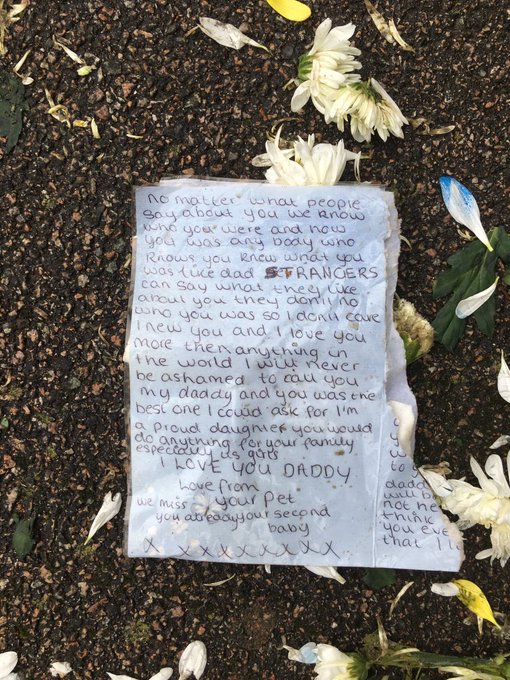 No matter what people
say about you we know
who you were and how
you was any body who
knows you knew what you
was like dad STRANGERS
can say what they like
about you they don't no
who you was so I don't care
I new you and I love you
more then anything in
the world I will never
be ashamed to call you
my daddy and you was the
best one I could ask for I'm
a proud daughter you would
do anything for your family
especially us girls
I LOVE YOU DADDY
Love from
your Pet
we miss
you already your second
baby
X X X X X X X X X
to b
dadd
will b
not he
think
you eve
that I l